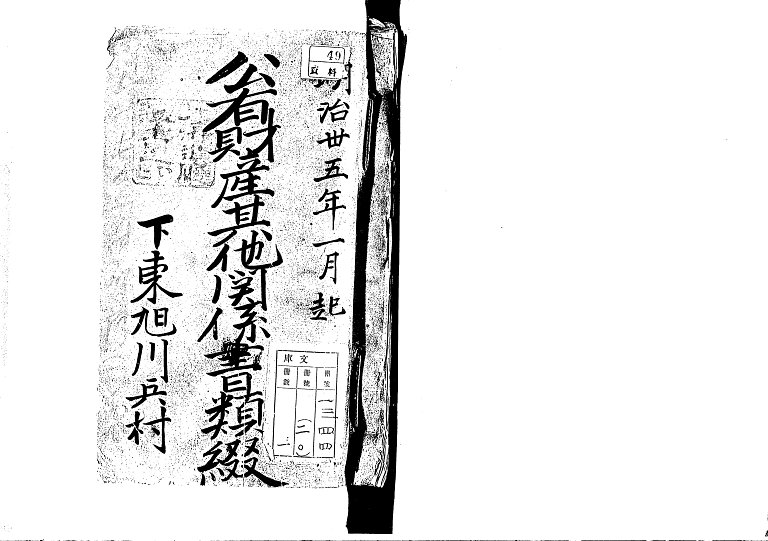 49
資料
明治丗五年一月起
公有財産其他関係書類綴
下東旭川兵村
文庫
冊数
一三四四
(二〇)
一